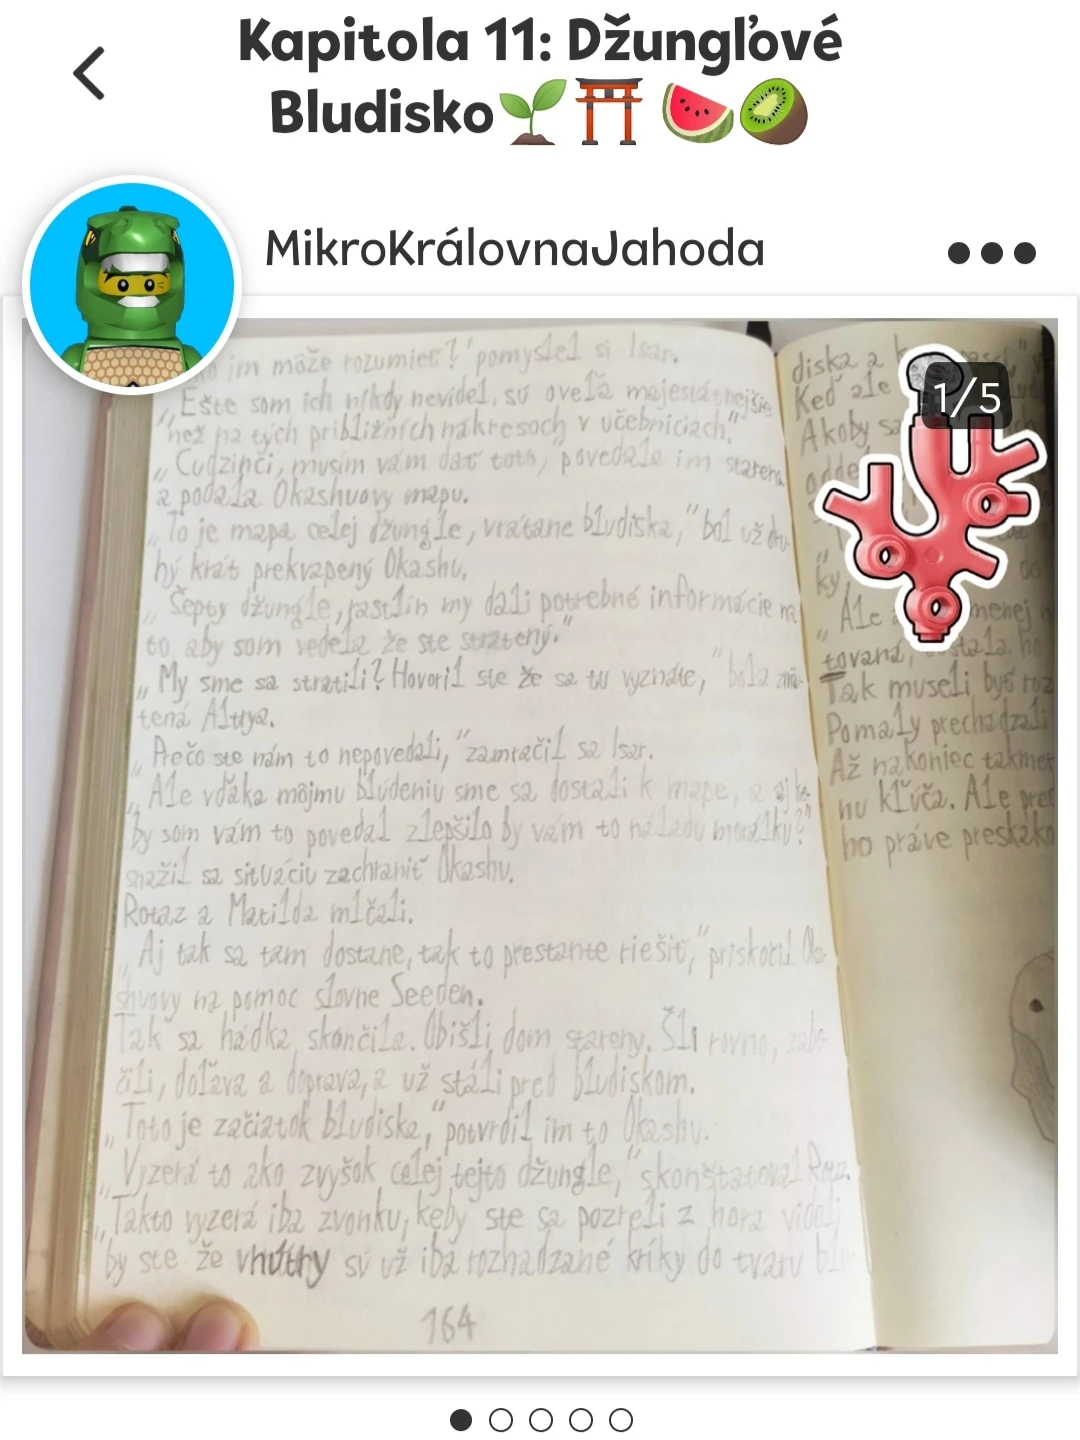 Kapitola 11: Džungľové
Bludisko
MikroKrálovnaJahoda
1/5
im môže rozumieť?" pomyslel si Isar.
„Ešte som ich nikdy nevidel, sú oveľa majestátnejšie
než na tých približních nákresoch v učebniciach."
„Cudzinci, musím vám dať toto," povedala im starena
a podala Okashuovy mapu.
„To je mapa celej džungle, vrátane bludiska," bol už dru-
hý krát prekvapený Okashu.
„Šepty džungle, rastlín my dali potrebné informácie na
to aby som vedela že ste stratený."
„My sme sa stratili? Hovoril ste že sa tu vyznáte," bola zmä-
tená Aluya.
„Prečo ste nám to nepovedali," zamračil sa Isar.
„Ale vďaka môjmu blúdeniu sme sa dostali k mape, a aj ke-
by som vám to povedal zlepšilo by vám to náladu morálku?"
snažil sa situáciu zachraniť Okashu.
Rotaz a Matilda mlčali.
„Aj tak sa tam dostane, tak to prestante riešiť," priskočil Oka-
shuovy na pomoc slovne Seeden.
Tak sa hádka skončila. Obišli dom stareny. Šli rovno, zabo-
čili, doľava a doprava, a už stáli pred bludiskom.
„Toto je začiatok bludiska," potvrdil im to Okashu.
„Vyzerá to ako zvyšok celej tejto džungle," skonštatoval Rotaz.
„Takto vyzerá iba zvonku, keby ste sa pozreli z hora videli
by ste že vnútry sú už iba rozhadzané kríky do tvaru blu-
164
diska a
Keď ale
Akoby sa
ky
„Ale menej
tovaná, ostala ho
Tak museli byť roz
Pomaly prechádzali
Až nakoniec takmer
nu kľúča. Ale pred
ho práve preskako